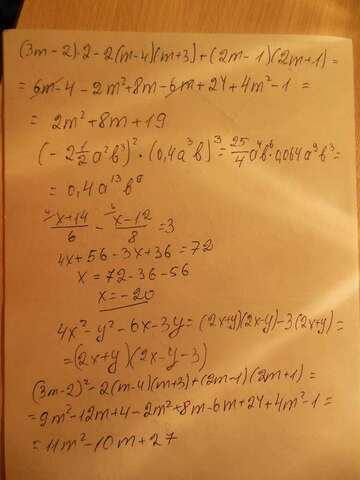 (3m-2)·2-2(m-4)(m+3)+(2m-1)(2m+1)=
=6m-4-2m²+8m-6m+24+4m²-1=
=2m²+8m+19
(-2 1/2 a²b³)²·(0,4a³b)³=25/4 a⁴b⁶·0,064a⁹b³=
=0,4a¹³b⁶
⁴⁄ x+14/6 - ³⁄ x-12/8 =3
4x+56-3x+36=72
x=72-36-56
x=-20
4x²-y²-6x-3y=(2x+y)(2x-y)-3(2x+y)=
=(2x+y)(2x-y-3)
(3m-2)²-2(m-4)(m+3)+(2m-1)(2m+1)=
=9m²-12m+4-2m²+8m-6m+24+4m²-1=
=11m²-10m+27